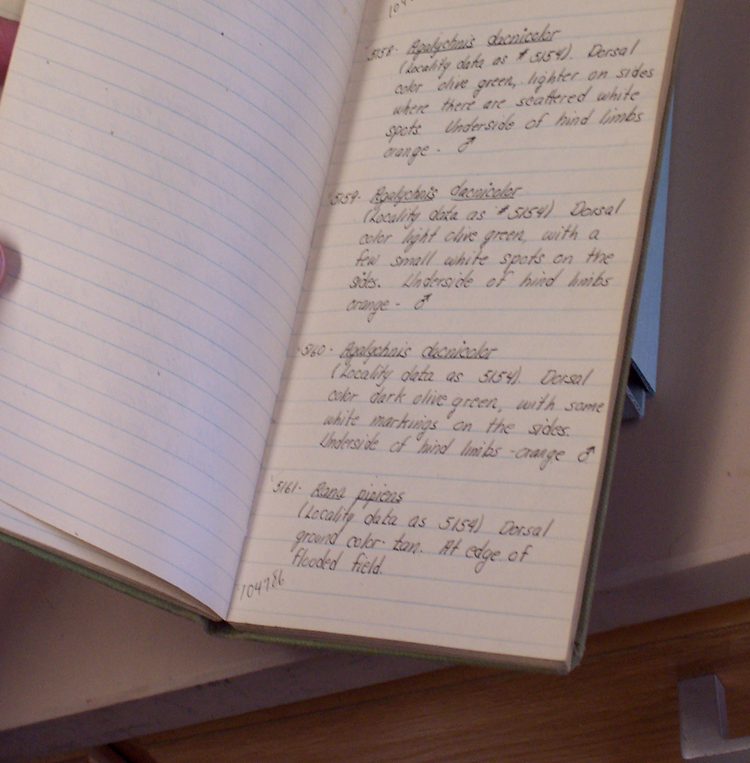 104
5158- Agalychnis dacnicolor
(Locality data as # 5154). Dorsal
color olive green, lighter on sides
where there are scattered white
spots. Underside of hind limbs
orange - ♂
5159- Agalychnis dacnicolor
(Locality data as # 5154) Dorsal
color light olive green, with a
few small white spots on the
sides. Underside of hind limbs
orange - ♂
5160- Agalychnis dacnicolor
(Locality data as 5154). Dorsal
color dark olive green, with some
white markings on the sides.
Underside of hind limbs - orange ♂
5161- Rana pipiens
(Locality data as 5154) Dorsal
ground color- tan. At edge of
flooded field.
104786